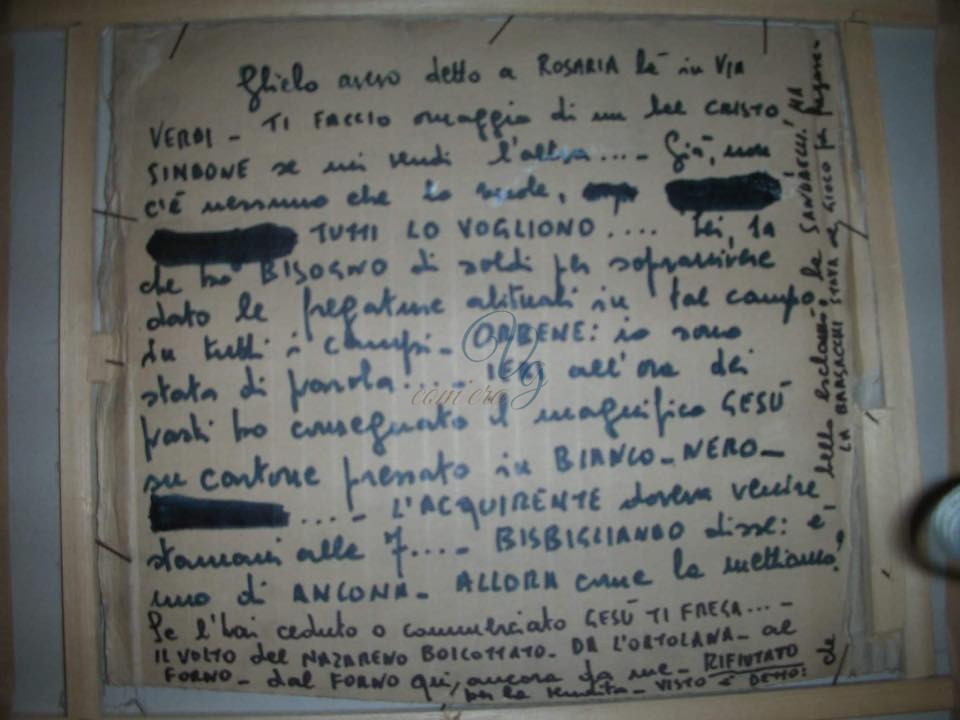 Glielo avevo detto a ROSARIA là in VIA
VERDI - TI FACCIO omaggio di un bel CRISTO
SINDONE se mi vendi l'altra.... - Già, non
c'è nessuno che lo vuole,
TUTTI LO VOGLIONO.... Lei, sa
che ho BISOGNO di soldi per sopravvivere
dato le fregature abituali in tal campo,
in tutti i campi - ORBENE: io sono
stata di parola.... - IERI all'ora dei
pasti ho consegnato il magnifico GESÙ
su cartone pressato in BIANCO-NERO-
.... - L'ACQUIRENTE doveva venire
stamani alle 7.... - BISBIGLIANDO disse: è
uno di ANCONA - ALLORA come la mettiamo?
Se l'hai ceduto o commerciato GESÙ TI FREGA... -
IL VOLTO del NAZARENO BOICOTTATO - DA L'ORTOLANA - al
FORNO - dal FORNO qui, ancora da me - RIFIUTATO
per la vendita - VISTO e DETTO:
che bello esclamò la SANDRECCHI! MA
LA BARGACCHI STAVA al GIOCO per
Vg
cam'era